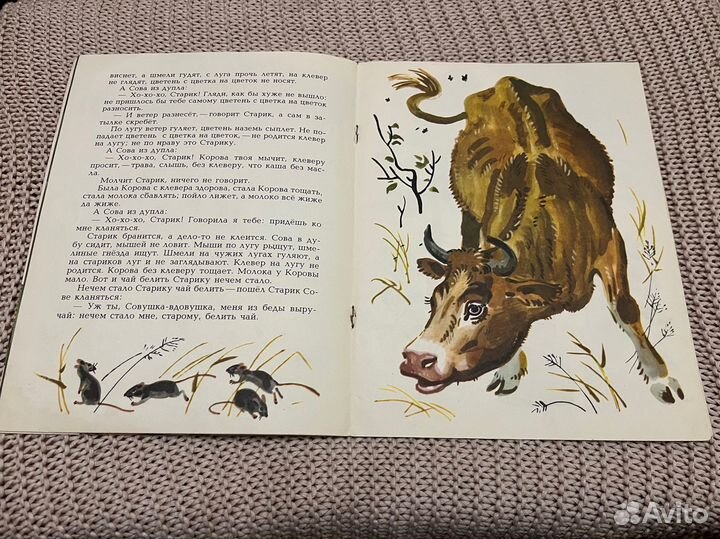 виснет, а шмели гудят, с луга прочь летят, на клевер
не глядят, цветень с цветка на цветок не носят.
А Сова из дупла:
— Хо-хо-хо, Старик! Гляди, как бы хуже не вышло:
не пришлось бы тебе самому цветень с цветка на цветок
разносить.
— И ветер разнесёт,— говорит Старик, а сам в за-
тылке скребёт.
По лугу ветер гуляет, цветень наземь сыплет. Не по-
падает цветень с цветка на цветок,— не родится клевер
на лугу; не по нраву это Старику.
А Сова из дупла:
— Хо-хо-хо, Старик! Корова твоя мычит, клеверу
просит,— трава, слышь, без клеверу, что каша без мас-
ла.
Молчит Старик, ничего не говорит.
Была Корова с клевера здорова, стала Корова тощать,
стала молока сбавлять; пойло лижет, а молоко всё жиже
да жиже.
А Сова из дупла:
— Хо-хо-хо, Старик! Говорила я тебе: придёшь ко
мне кланяться.
Старик бранится, а дело-то не клеится. Сова в ду-
бу сидит, мышей не ловит. Мыши по лугу рыщут, шме-
линые гнёзда ищут. Шмели на чужих лугах гуляют, а
на стариков луг и не заглядывают. Клевер на лугу не
родится. Корова без клеверу тощает. Молока у Коровы
мало. Вот и чай белить Старику нечем стало.
Нечем стало Старику чай белить — пошёл Старик Со-
ве кланяться:
— Уж ты, Совушка-вдовушка, меня из беды выру-
чай: нечем стало мне, старому, белить чай.
Avito